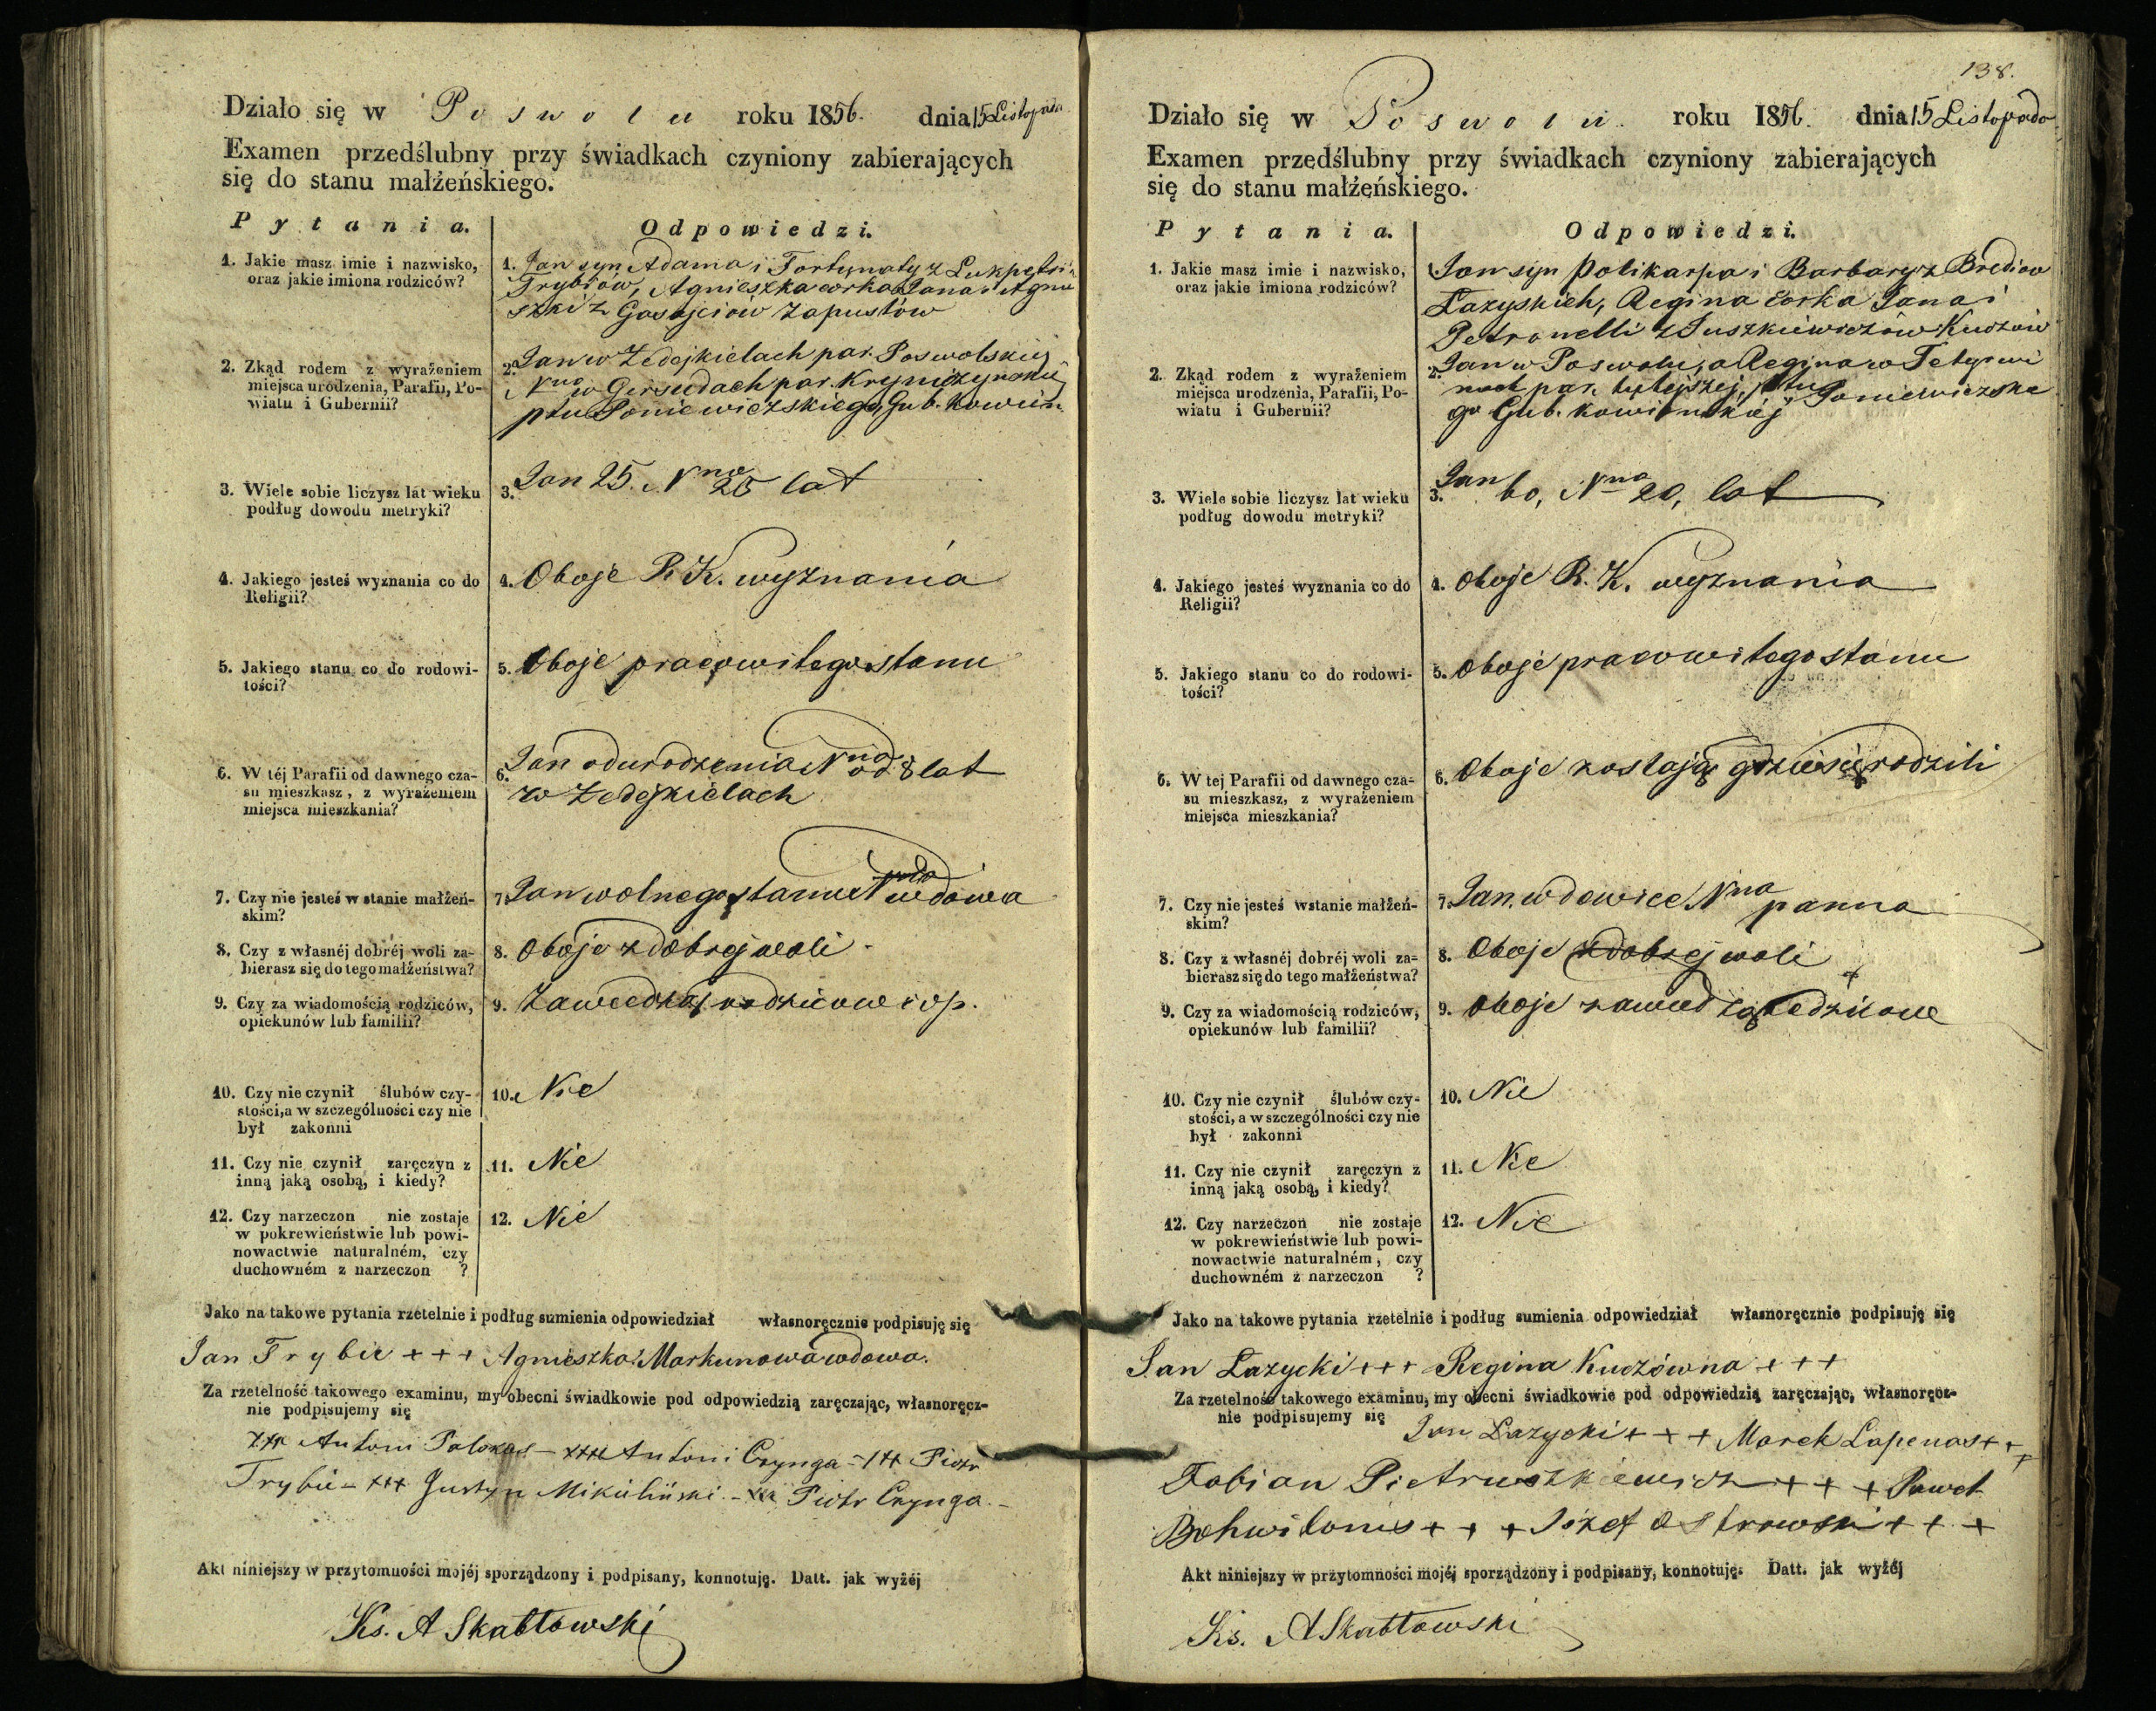 Działo się w Poswolu roku 1856. dnia 15 Listopada
Examen przedślubny przy świadkach czyniony zabierających
się do stanu małżeńskiego.
Pytania. Odpowiedzi.
1. Jakie masz imie i nazwisko,
oraz jakie imiona rodziców?
1. Jan syn Adama i Fortunaty z
Trybiów, Agnieszka corka Jana i Agnie
szki z Zapustów
2. Zkąd rodem z wyrażeniem
miejsca urodzenia, Parafii, Po-
wiatu i Gubernii?
2. Jan w Żedejkielach par. Poswolskiej
Nna w Girsudach par. Krynczynskiej
ptu Poniewiezskiego, Gub. Kowień.
3. Wiele sobie liczysz lat wieku
podług dowodu metryki?
3. Jan 25. Nna 26 lat
4. Jakiego jesteś wyznania co do
Religii?
4. Oboje R. K. wyznania
5. Jakiego stanu co do rodowi-
tości?
5. Oboje pracowitego stanu
6. W téj Parafii od dawnego cza-
su mieszkasz, z wyrażeniem
miejsca mieszkania?
6. Jan od urodzenia Nna od 8 lat
w Żedejkielach
7. Czy nie jesteś w stanie małżeń-
skim?
7. Jan wolnego stanu Nna wdowa
8. Czy z własnéj dobréj woli za-
bierasz się do tego małżeństwa?
8. Oboje z dobrej woli.
9. Czy za wiadomością rodziców,
opiekunów lub familii?
9. rodzicow
10. Czy nie czynił ślubów czy-
stości, a w szczególności czy nie
był zakonni
10. Nie
11. Czy nie czynił zaręczyn z
inną jaką osobą, i kiedy?
11. Nie
12. Czy narzeczon nie zostaje
w pokrewieństwie lub powi-
nowactwie naturalném, czy
duchowném z narzeczon ?
12. Nie
Jako na takowe pytania rzetelnie i podług sumienia odpowiedział własnoręcznie podpisuję się
Jan Trybie +++ Agnieszka Markunowa wdowa.
Za rzetelność takowego examinu, my obecni świadkowie pod odpowiedzią zaręczając, własnoręcz-
nie podpisujemy się
xxx Antoni Polokas - xxx Antoni Czynga - +++ Piotr
Trybie - xxx Justyn Mikuliński. - xxx Piotr Czynga. -
Akt niniejszy w przytomności mojéj sporządzony i podpisany, konnotuję. Datt. jak wyżéj
Ks. A Skabłowski
138.
Działo się w Poswolu. roku 1856. dnia 15 Listopada
Examen przedślubny przy świadkach czyniony zabierających
się do stanu małżeńskiego.
Pytania. Odpowiedzi.
1. Jakie masz imie i nazwisko,
oraz jakie imiona rodziców?
Jan syn Polikarpa i Barbary z Brediow
Łazyskich, Regina córka Jana i
Petronelli z Juszkiewiczów Kuczów
2. Zkąd rodem z wyrażeniem
miejsca urodzenia, Parafii, Po-
wiatu i Gubernii?
2. Jan w Poswolu, a Regina w Tetyrwi
nach par. tutejszej, ptu Poniewiezskie
go Gub. Kowieńskiéj
3. Wiele sobie liczysz lat wieku
podług dowodu metryki?
3. Jan 60, Nna 20, lat
4. Jakiego jesteś wyznania co do
Religii?
4. Oboje R. K. wyznania
5. Jakiego stanu co do rodowi-
tości?
5. Oboje pracowitego stanu
6. W tej Parafii od dawnego cza-
su mieszkasz, z wyrażeniem
miejsca mieszkania?
6. Oboje zostają gdzie się rodzili
7. Czy nie jesteś wstanie małżeń-
skim?
7. Jan. wdowiec Nna panna
8. Czy z własnéj dobréj woli za-
bierasz się do tego małżeństwa?
8. Oboje z dobrej woli
9. Czy za wiadomością rodziców,
opiekunów lub familii?
9. Oboje
10. Czy nie czynił ślubów czy-
stości, a w szczególności czy nie
był zakonni
10. Nie
11. Czy nie czynił zaręczyn z
inną jaką osobą, i kiedy?
11. Nie
12. Czy narzeczon nie zostaje
w pokrewieństwie lub powi-
nowactwie naturalném, czy
duchowném z narzeczon ?
12. Nie
Jako na takowe pytania rzetelnie i podług sumienia odpowiedział własnoręcznie podpisuję się
Jan Łazycki +++ Regina Kuczówna +++
Za rzetelność takowego examinu, my obecni świadkowie pod odpowiedzią zaręczając, własnoręcz-
nie podpisujemy się
Jan Łazycki +++ Marek Łapenas +++
Fabian Pietruszkiewicz +++ Paweł
+++ Józef Ostrowski +++
Akt niniejszy w przytomności mojéj sporządzony i podpisany, konnotuję. Datt. jak wyżéj
Ks. A Skabłowski